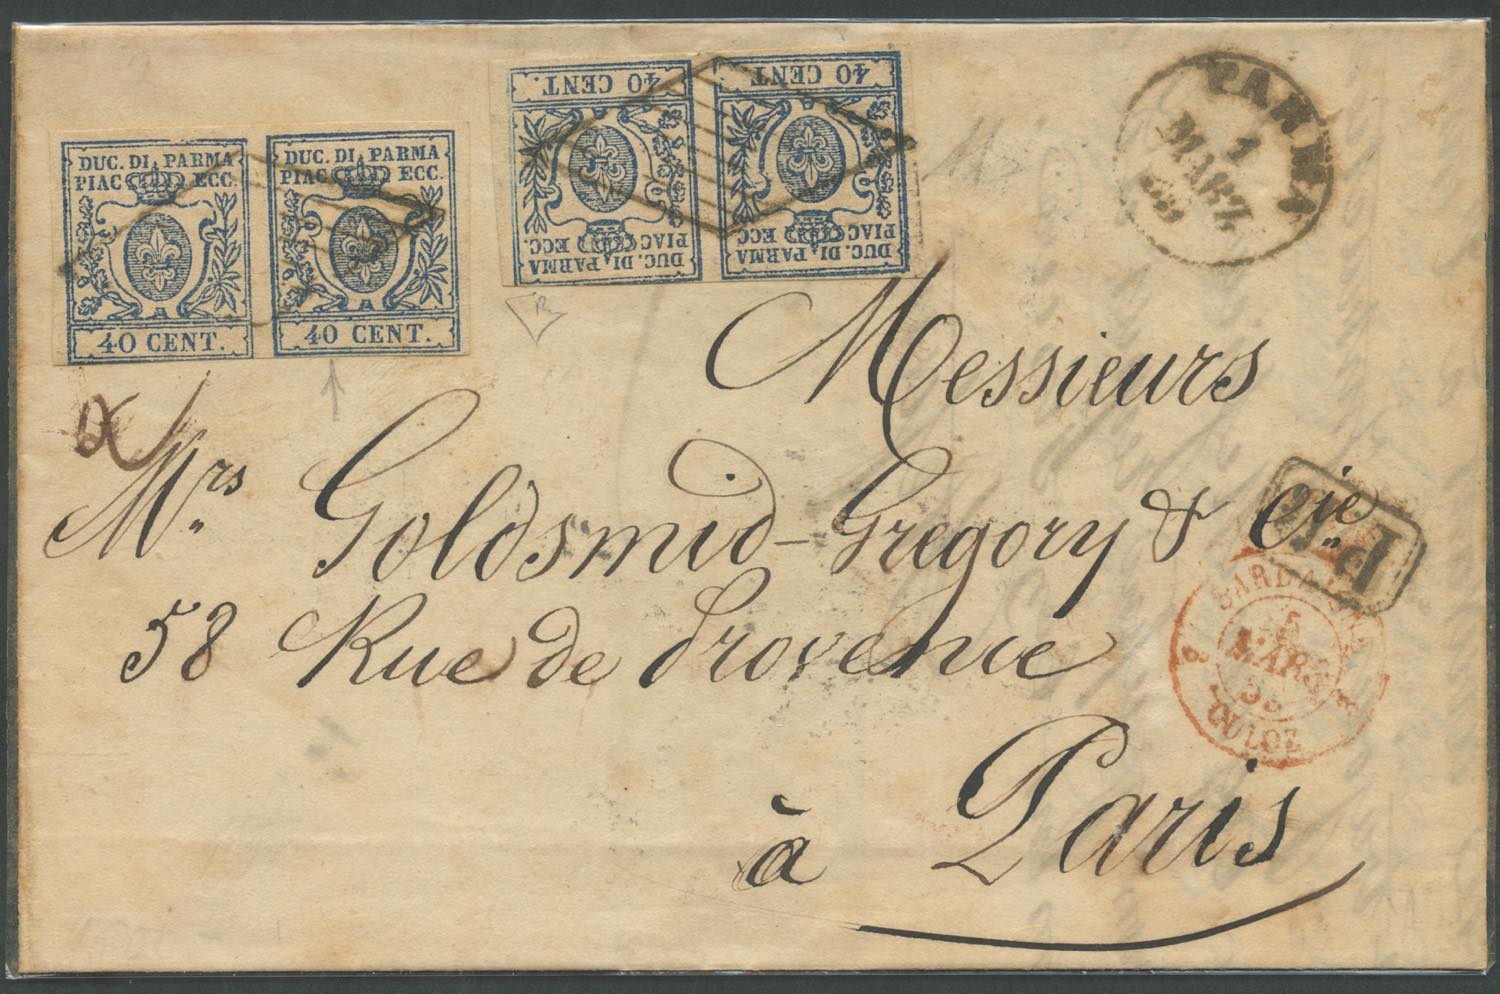 DUC. DI PARMA
PIAC ECC.
40 CENT.
DUC. DI PARMA
PIAC ECC.
40 CENT.
DUC. DI PARMA
PIAC ECC.
40 CENT.
DUC. DI PARMA
PIAC ECC.
40 CENT.
PARMA
1
MARZ
Messieurs
Mrs Goldsmid-Gregory & Cie
58 Rue de Provence
à Paris
5
MARS
CULOZ